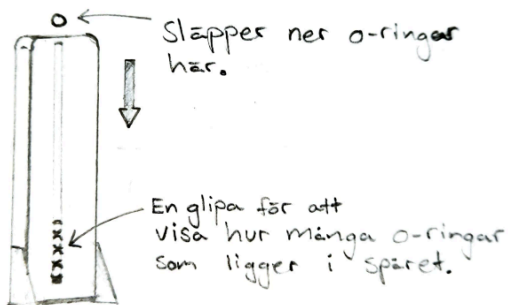 Släpper ner o-ringar
här.
En glipa för att
visa hur många o-ringar
som ligger i spåret.